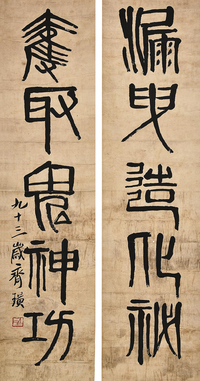 漏曳造化秘
奪取鬼神功
九十三歲齊璜